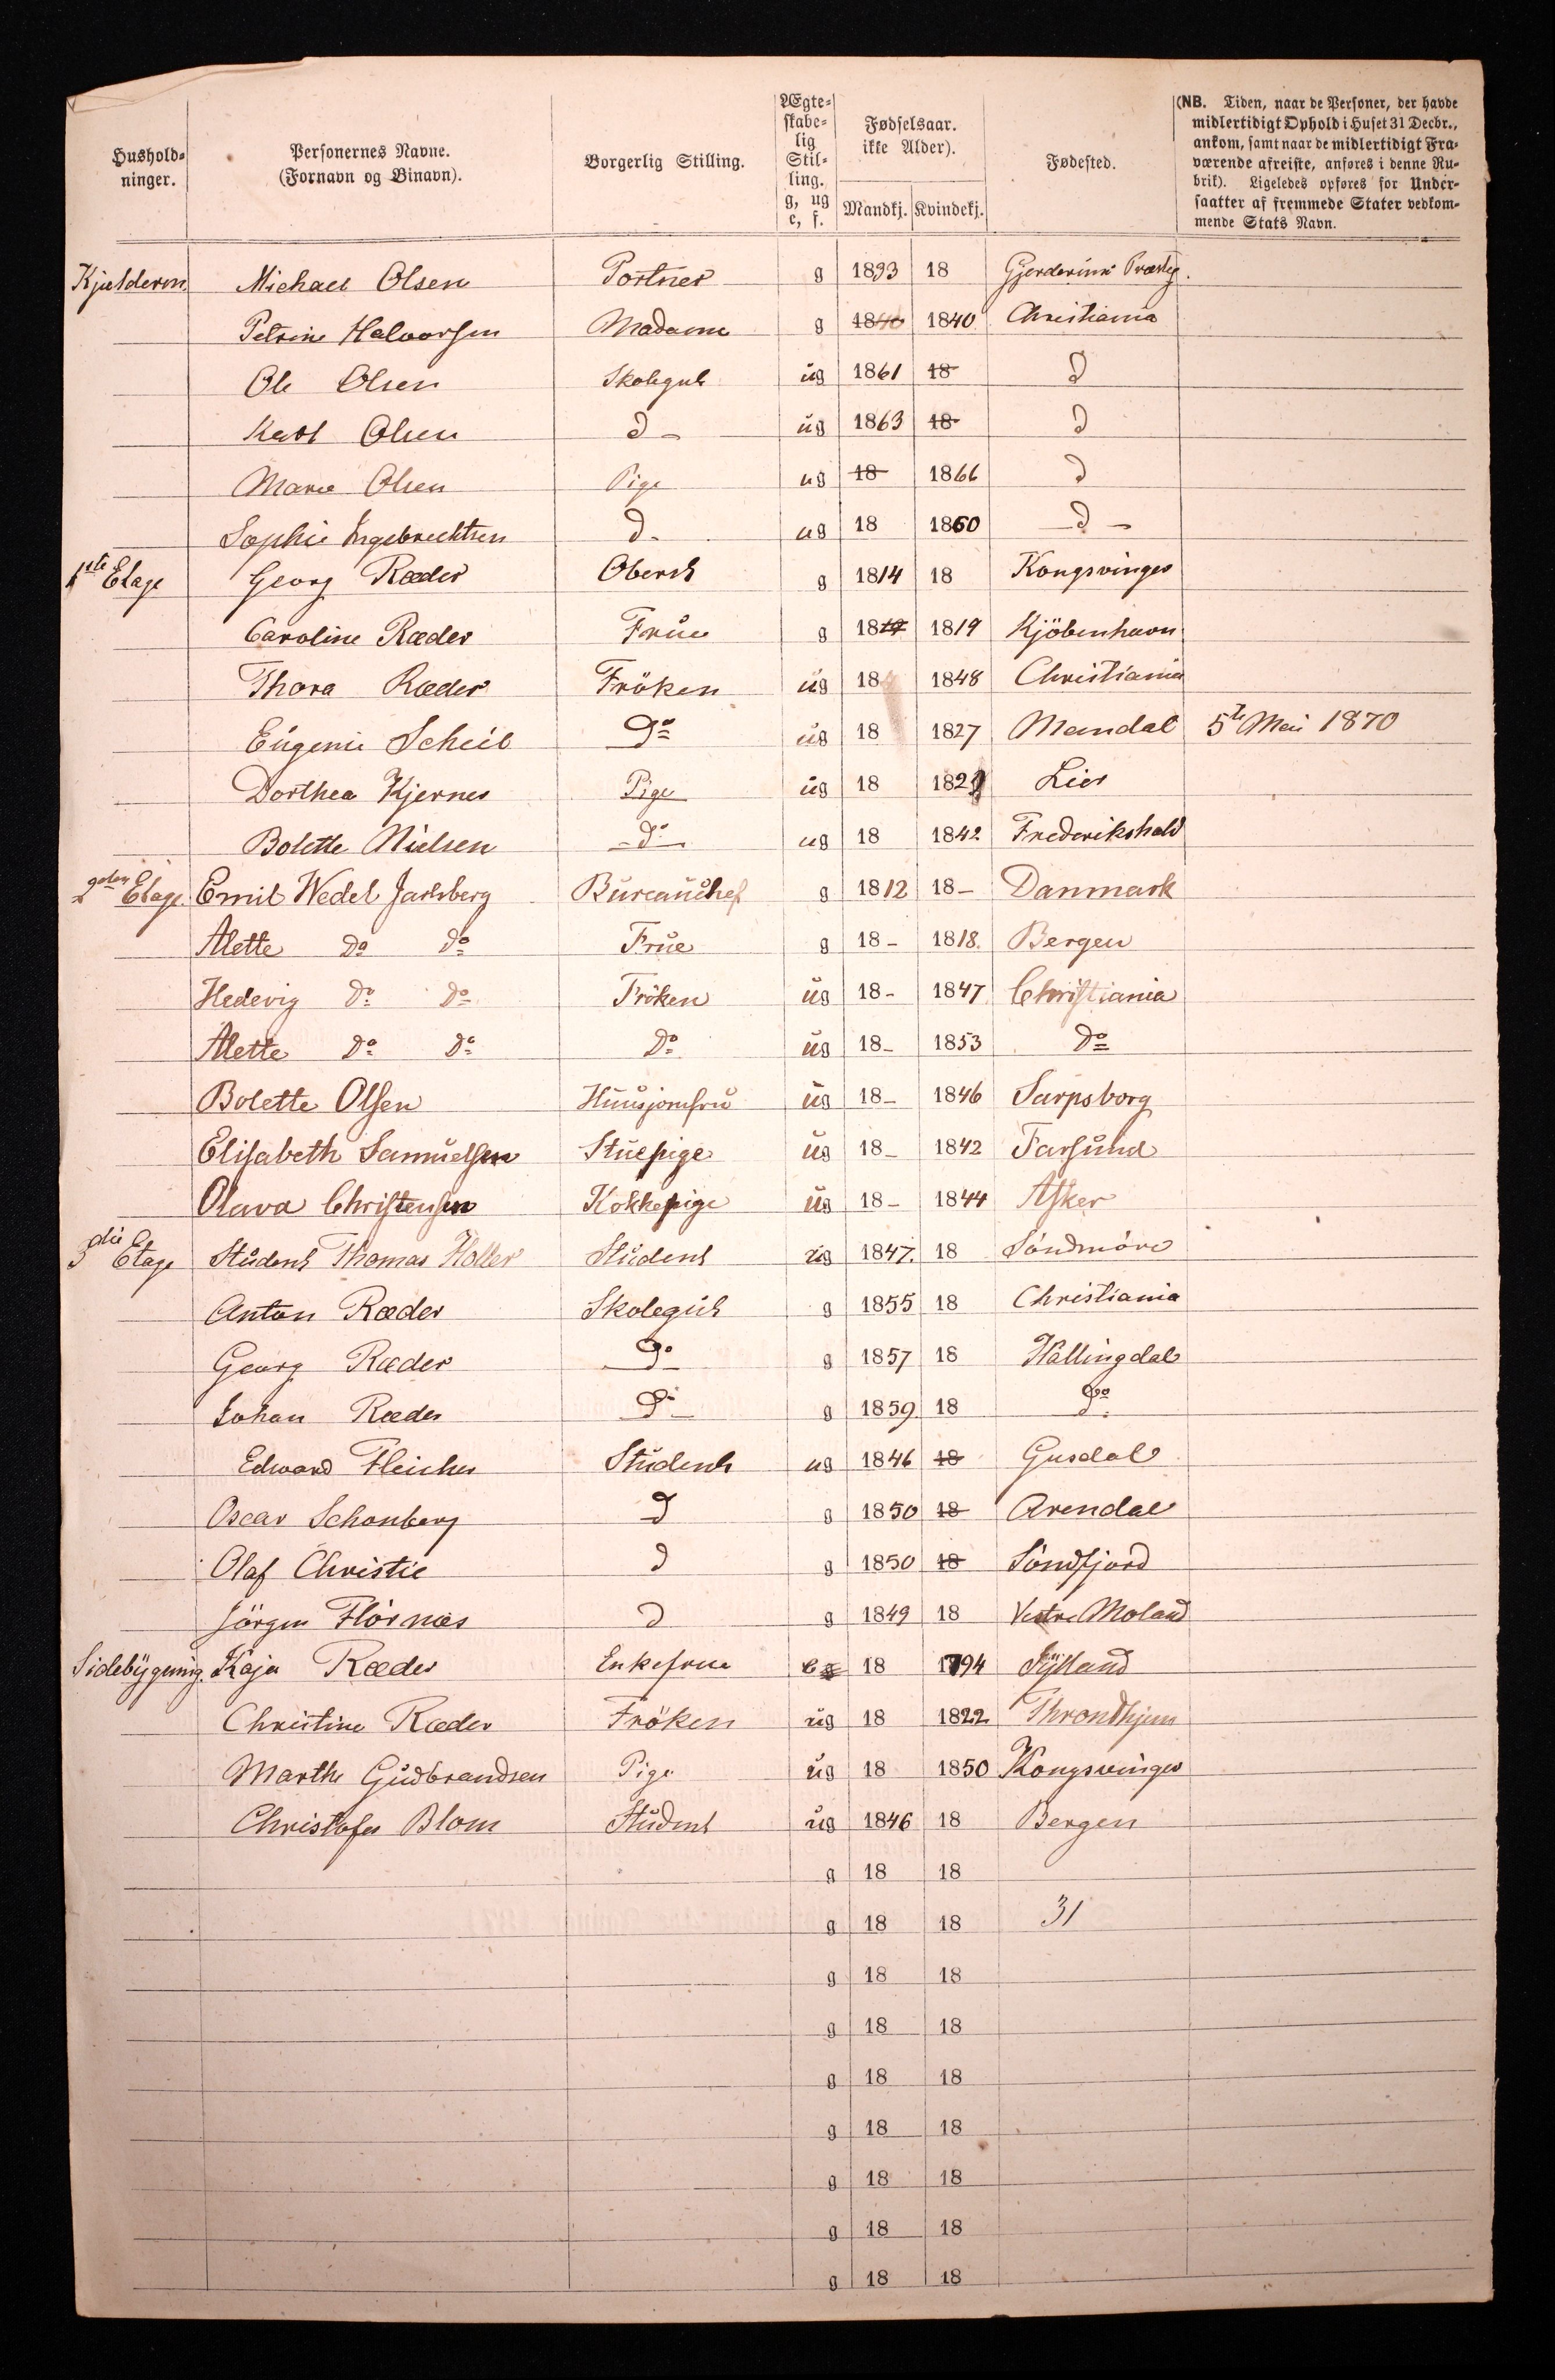 Hushold-
ninger.
Personernes Navne.
(Fornavn og Binavn).
Borgerlig Stilling.
Ægte-
skabe-
lig
Stil-
ling.
g, ug
e, f.
Fødselsaar.
ikke Alder).
Mandkj. Kvindekj.
Fødested.
(NB. Tiden, naar de Personer, der havde
midlertidigt Ophold i Huset 31 Decbr.,
ankom, samt naar de midlertidigt Fra-
værende afreiste, anføres i denne Ru-
brik). Ligeledes opføres for Under-
saatter af fremmede Stater vedkom-
mende Stats Navn.
Kjelderen Michael Olsen Portner g 1833 18 Gjerderum Præsteg.
Petrine Halvorsen Madame g 1840 1840 Christiania
Ole Olsen Skolegut ug 1861 18 D
Karl Olsen d - ug 1863 18 D
Marie Olsen Pige ug 18 1866 D
Sophie Ingebrechtsen d. ug 18 1860 - D -
1ste Etage Georg Ræder Oberst g 1814 18 Kongsvinger
Caroline Ræder Frue g 1819 1819 Kjöbenhavn
Thora Ræder Fröken ug 18 1848 Christiania
Eugenie Scheil Do ug 18 1827 Mandal 5te Mai 1870
Dorthea Kjernes Pige ug 18 182 Lier
Bolette Nielsen - do - ug 18 1842 Frederikshald
2den Etage Emil Wedel Jarlsberg Bureauchef g 1812 18- Danmark
Alette do do Frue g 18- 1818. Bergen
Hedevig do do Fröken ug 18- 1847 Christiania
Alette do do do ug 18- 1853 do
Bolette Olsen Huusjomfru ug 18- 1846 Sarpsborg
Elisabeth Samuelsen Stuepige ug 18- 1842 Farsund
Olava Christensen Kokkepige ug 18- 1844 Asker
3die Etage Student Thomas Holler Student ug 1847. 18 Söndmöre
Anton Ræder Skolegut g 1855 18 Christiania
Georg Ræder Do g 1857 18 Hallingdal
Johan Ræder Do g 1859. 18 Do
Edward Fleicher Student ug 1846 18 Gusdal
Oscar Schonberg D g 1850 18 Arendal
Olaf Christie D g 1850 18 Söndfjord
Jörgen Flörnæs D g 1849 18 Vestre Moland
Sidebygning. Kaja Ræder Enkefrue e 18 1794 Jylland
Christine Ræder Fröken ug 18 1822 Throndhjem
Marthe Gudbrandsen Pige ug 18 1850 Kongsvinger
Christofer Blom Student ug 1846 18 Bergen
g 18 18
g 18 18 31
g 18 18
g 18 18
g 18 18
g 18 18
g 18 18
g 18 18
g 18 18